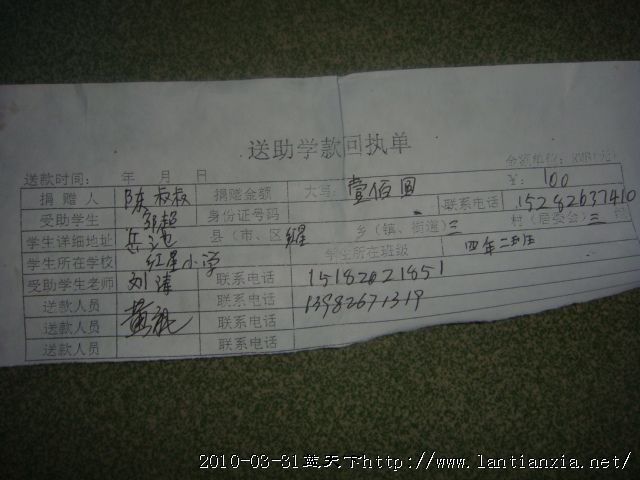 送助学款回执单
送款时间: 年 月 日 金额单位: RMB(元)
捐赠人 陈叔叔 捐赠金额 大写: 壹佰圆 ¥: 100
受助学生 邹超 身份证号码 联系电话 15282637410
学生详细地址 岳池 县(市、区) 红星 乡(镇、街道) 三 村(居委会) 三
学生所在学校 红星小学 学生所在班级 四年二班
受助学生老师 刘涛 联系电话 15182621851
送款人员 黄 联系电话 13982671319
送款人员 联系电话
送款人员 联系电话
2010-03-31蓝天下http://www.lantianxia.net/